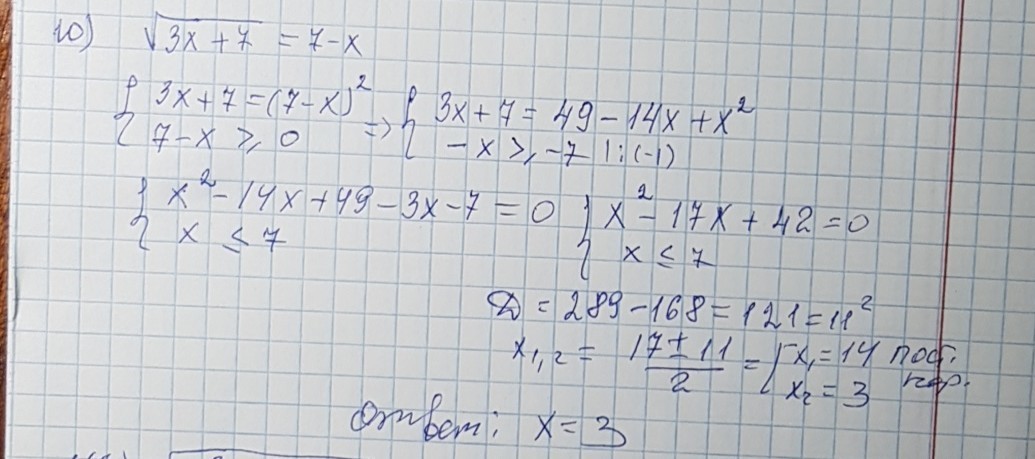 10) √3x+7 = 7-x
{ 3x+7=(7-x)² => { 3x+7 = 49-14x+x²
7-x ≥ 0 -x ≥ -7 |:(-1)
{ x²-14x+49-3x-7=0 { x²-17x+42=0
x ≤ 7 x ≤ 7
D = 289-168=121=11²
x₁,₂ = (17±11)/2 = [ x₁=14 пос.
x₂=3 кор.
Ответ: x=3